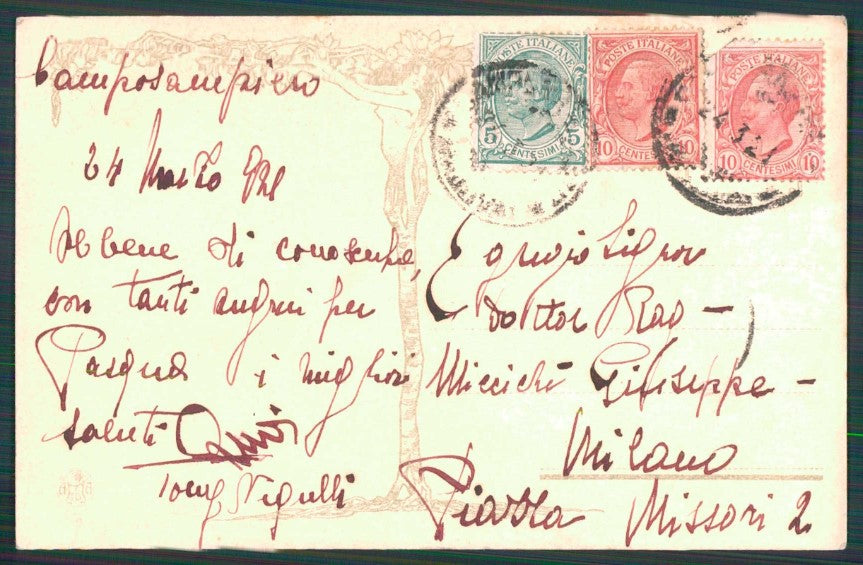 Camposampiero
24 Marzo 921
Sebbene di
con tanti auguri per
Pasqua i migliori
saluti
POSTE ITALIANE
5 5
CENTESIMI
POSTE ITALIANE
10 10
CENTESIMI
POSTE ITALIANE
10 10
CENTESIMI
24.3.21
Egregio Signor
dottor Rag -
Miccichè Giuseppe -
Milano
Piazza Missori 2